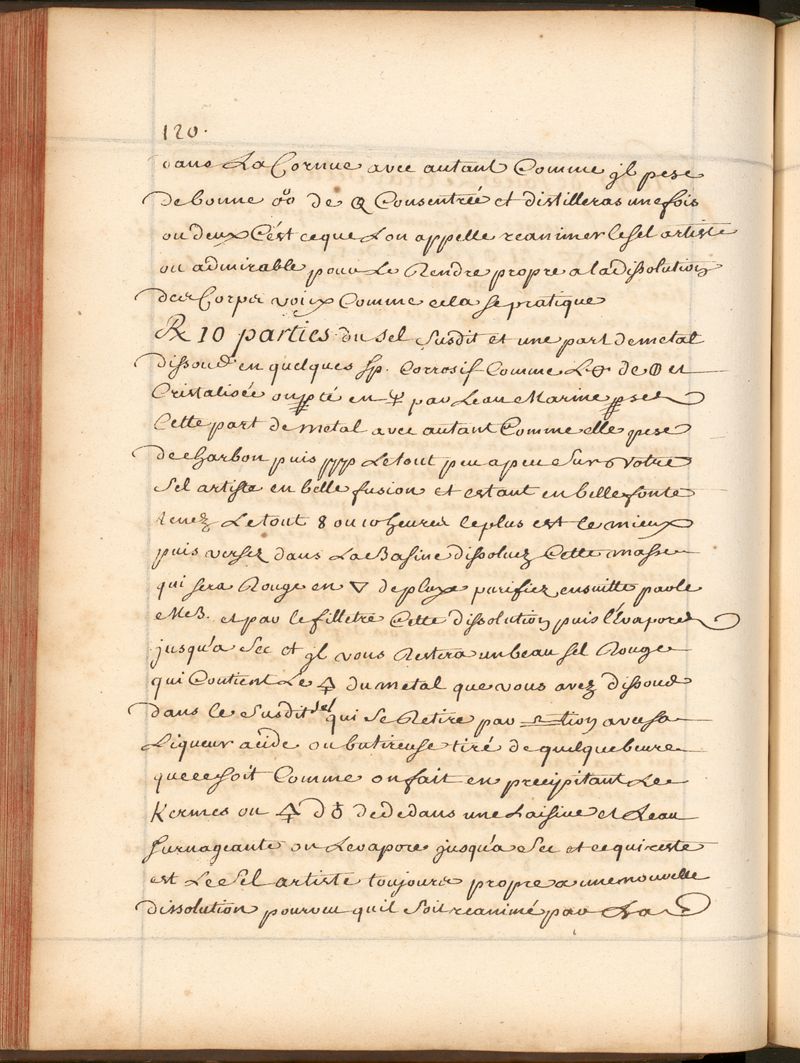 120.
dans La Cornue avec autant Comme jl pese
de bonne de Consentreé et distilleras une fois
ou deux C'ést ce que L'on appelle reanimer le sel artiste
ou admirable pour Le Rendre propre a la dissolution
des Corps voicy Comme cela se pratique
℞ 10 parties du sel susdit et une part de metal
dissoud en quelques sp. Corrosif Comme L☿ de et
Cristalisée ou ppté en par Leau Marine ppse
Cette part de metal avec autant Comme elle pese
de charbon puis ppp Le tout peu a peu sur Votre
sel artiste en belle fusion et estant en belle fonte
tenez Le tout 8 ou 10 heures le plus est le mieux
puis versez dans La Basine dissoluez Cette masse
qui sera Rouge en 🜄 de pluye purifiez ensuitte par le
MB. et par le filletre Cette dissolution puis l'évaporer
jusqu'a sec et jl vous Restera un beau sel Rouge
qui Contient Le 🜍 du metal que vous avez dissoud
dans le susdit sel qui se Retire par tion avec sa
Liqueur acide ou butireuse tiré de quelque beure
que ce soit Comme on fait en precipitant Le
Kermes ou 🜍 d ♁ de dedans une Laisive et Leau
surnageante on Levapore jusqu'a sec et ce qui reste
est Le sel artiste toujours propre a une nouvelle
dissolution pourveu quil soit reanimé par La